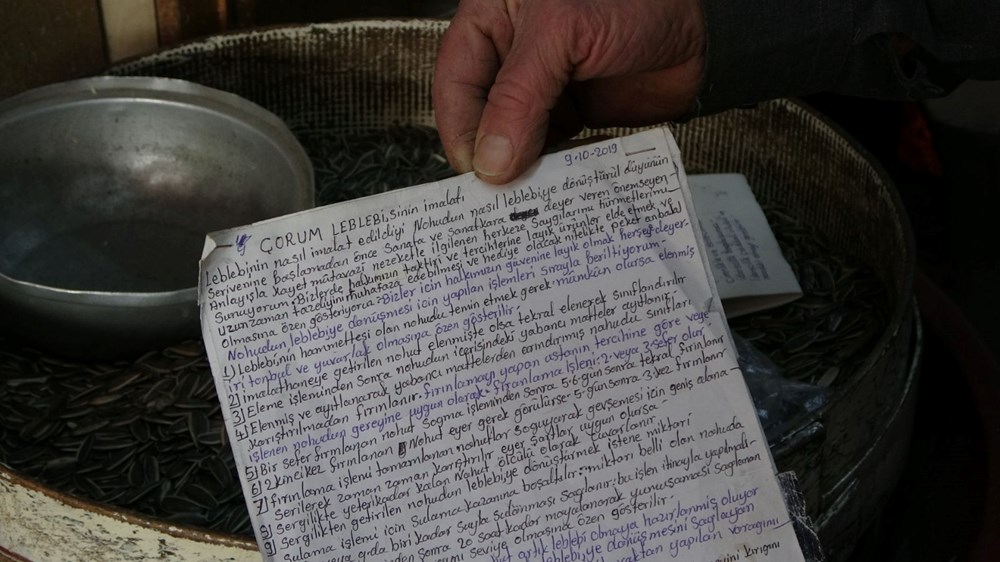 9-10-2019
ÇORUM LEBLEBİ,sinin imalatı
Leblebinin nasıl imalat edildiği Nohudun nasıl leblebiye dönüştürül düyünün
Serivenine başlamadan önce Sanata ve sanatkara deyer veren önemseyen
Anlayışla kayet mütavazi nezeketle ilgilenen herkeze Saygılarımı hürmetlerimi
Sunuyorum: Bizlerde halkımızın taktiri ve tercihlerine layık ürünler elde etmek ve
Uzun zaman tazeliyin muhafaza edebilmesi ve hediye olacak nitelikte peket anbalaj
olmasına özen gösteriyoruz: Bizler için halkımızın güvenine layık olmak herşeye deyer-
Nohudun leblebiye dönüşmesi için yapılan işlemleri sırayla beriltiyorum-
1) Leblebi,nin hammettesi olan nohudu temin etmek gerek. mümkün olursa elenmiş
iri tonbul ve yuvarlak olmasına özen gösterilir:
2) imalathaneye getirilen nohut elenmişte olsa tekral elenerek Sınıflandırılır
3) Eleme işleminden sonra nohudun içerisindeki yabancı matteler ayıtlanır
4) Elenmiş ve ayıtlanarak yabancı mattelerden arındırmış nahudu sınıfları
karıştırılmadan fırınlanır. fırınlamayı yapan ustanın tercihine göre veya
işlenen nohudun gereyine uygun olarak- fırınlama işleni: 2 veya 3 sefer olur
5) Bir sefer fırınlanan nohut Soğma işleminden sonra 5-6 gün sonra tekral fırınlanır
6) 2 kinci kez fırınlanan Nohut eyer gerek görülürse- 5-gün sonra 3. kez fırınlanır
7) fırınlama işlemi tamamlanan nohutlar soğuyarak gevşemesi için geniş alana-
Serilerek zaman zaman karıştırılır eyer şartlar uygun olursa-
8) Sergilikte yeterikadar kalan Nohut ölçülü olarak Çuvarlanır:
9) Sergilikten getirilen nohudun leblebiye dönüştürmek istene miktarı
Sulama işlemi için Sulama kazanına boşaltılır: miktarı belli olan nohuda
veya gıda biri kadar Suyla Sulanması Sağlanır: bu işlen itinayla yapılmadı-
inden sonra 20 saat kadar mayalanarak yumuşaması Sağlanan
umi seviye olmasına özen gösterilir:
ut artık leblebi olmaya hazırlanmış oluyor
leblebiye dönüşmesini Sağlayan
raktan yapılan varağımı